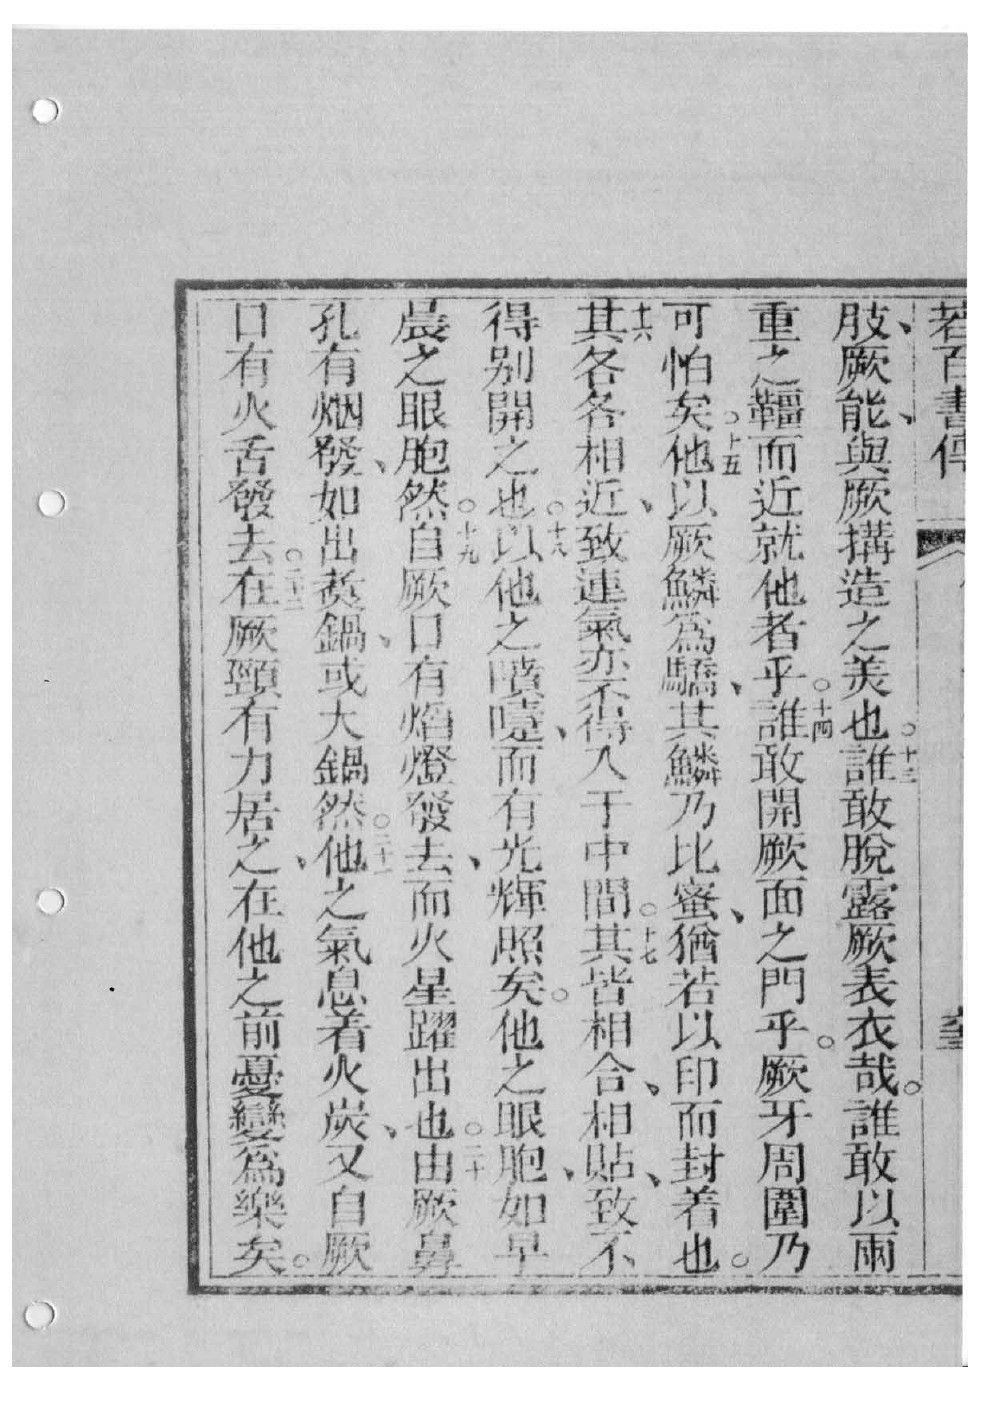 若百書傳
肢、厥能、與厥搆造之美也。十三誰敢脫露厥表衣哉。誰敢以兩
重之韁而近就他者乎。十四誰敢開厥面之門乎。厥牙周圍乃
可怕矣。十五他以厥鱗為驕、其鱗乃比蜜、猶若以印而封着也。
十六其各各相近、致連氣亦不得入于中間。十七其皆相合、相貼、致不
得別開之也。十八以他之噴嚏、而有光輝照矣。他之眼胞、如早
晨之眼胞然。十九自厥口有焰燈發去、而火星躍出也。二十由厥鼻
孔有烟發、如出煑鍋、或大鍋然。二十一他之氣息着火炭、又自厥
口有火舌發去。二十二在厥頸有力居之、在他之前憂變為樂矣。